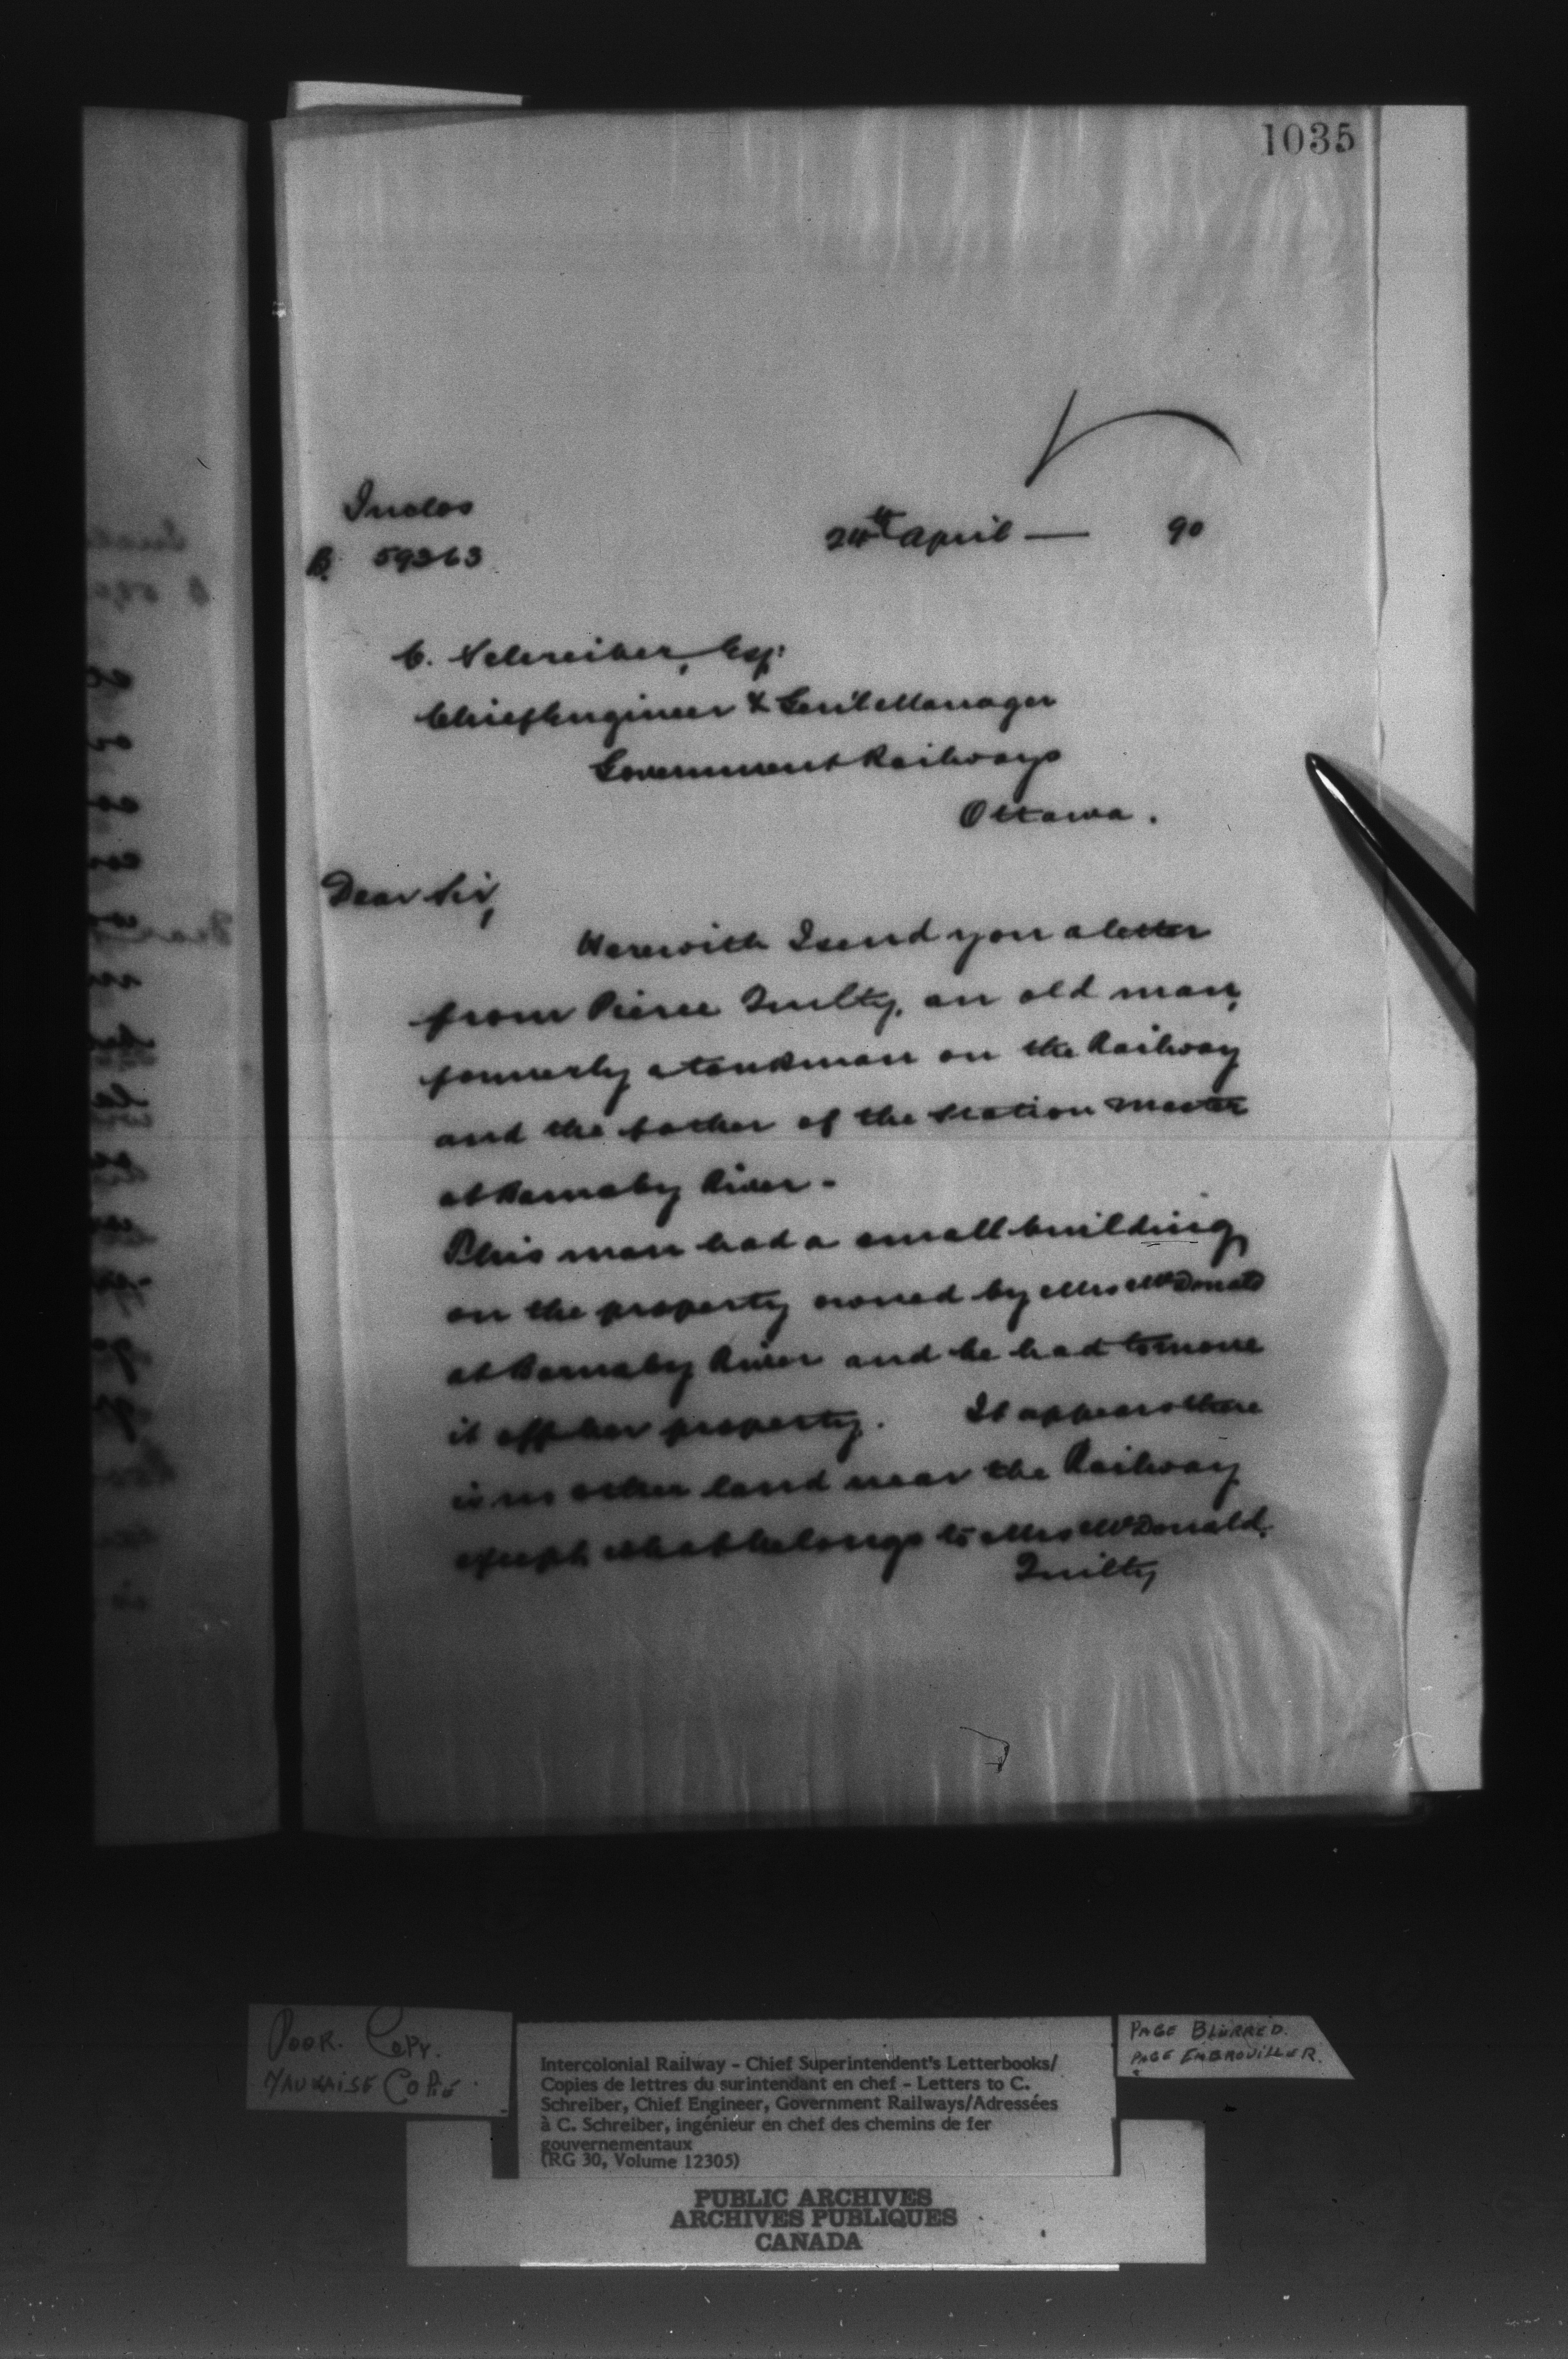 1035
Inclos
B. 59363
24th April — 90
C. Schreiber, Esq:
Chief Engineer & Gen'l Manager
Government Railways
Ottawa.
Dear Sir,
Herewith I send you a letter
from Pierce Quilty, an old man,
formerly a tankman on the Railway
and the father of the Station Master
at Barnaby River -
This man had a small building
on the property owned by Mrs McDonald
at Barnaby River and he had to move
it off her property. It appears there
is no other land near the Railway
except what belongs to Mrs McDonald.
Quilty
POOR. COPY.
MAUVAISE COPIE.
Intercolonial Railway - Chief Superintendent's Letterbooks/
Copies de lettres du surintendant en chef - Letters to C.
Schreiber, Chief Engineer, Government Railways/Adressées
à C. Schreiber, ingénieur en chef des chemins de fer
gouvernementaux
(RG 30, Volume 12305)
PAGE BLURRED.
PAGE EMBROUILLER.
PUBLIC ARCHIVES
ARCHIVES PUBLIQUES
CANADA